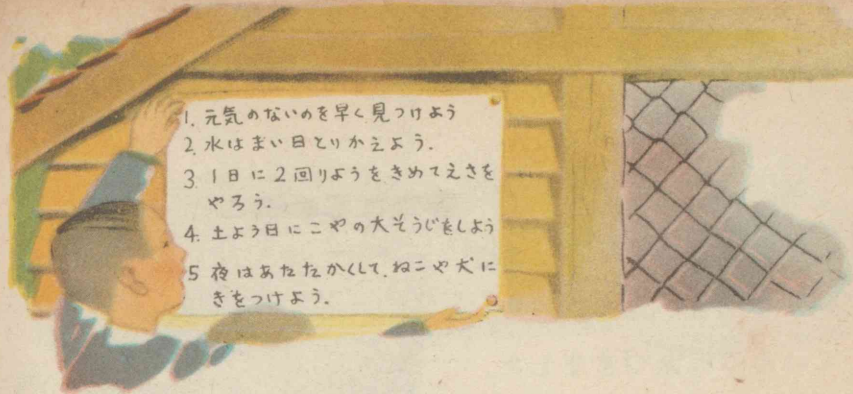 1. 元気のないのを早く見つけよう
2. 水はまい日とりかえよう.
3. 1日に2回りようをきめてえさを
やろう.
4. 土よう日にこやの大そうじをしよう
5 夜はあたたかくして、ねこや犬に
きをつけよう.